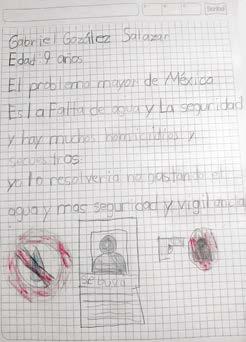 Gabriel Gozález Salazar
Edad 9 años
El problema mayor de México
Es la Falta de agua y La seguridad
y hay muchos homicidios y
secuestros:
yo lo resolveria no gastando el
agua y mas seguridad y vigilancia
Se busca